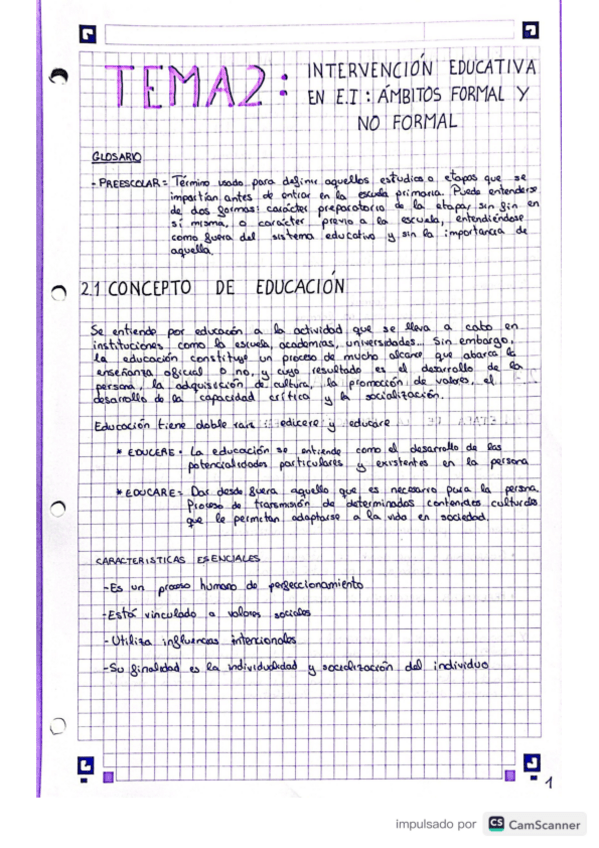 TEMA2:
INTERVENCIÓN EDUCATIVA
EN E.I : ÁMBITOS FORMAL Y
NO FORMAL
GLOSARIO
- PREESCOLAR = Término usado para definir aquellos estudios o etapas que se
impartían antes de entrar en la escuela primaria. Puede entenderse
de dos formas: carácter preparatorio de la etapa, sin fin en
sí misma, o carácter previo a la escuela, entendiéndose
como fuera del sistema educativo y sin la importancia de
aquella.
2.1 CONCEPTO DE EDUCACIÓN
Se entiende por educación a la actividad que se lleva a cabo en
instituciones como la escuela, academias, universidades... Sin embargo,
la educación constituye un proceso de mucho alcance, que abarca la
enseñanza oficial o no, y cuyo resultado es el desarrollo de la
persona, la adquisición de cultura, la promoción de valores, el
desarrollo de la capacidad crítica y la socialización.
Educación tiene doble raíz: edicere y educare
* EDUCERE = La educación se entiende como el desarrollo de las
potencialidades particulares y existentes en la persona
* EDUCARE = Dar desde fuera aquello que es necesario para la persona.
Proceso de transmisión de determinados contenidos culturales
que le permitan adaptarse a la vida en sociedad.
CARACTERISTICAS ESENCIALES
- Es un proceso humano de perfeccionamiento
- Está vinculado a valores sociales
- Utiliza influencias intencionales
- Su finalidad es la individualidad y socialización del individuo
1
impulsado por CS CamScanner